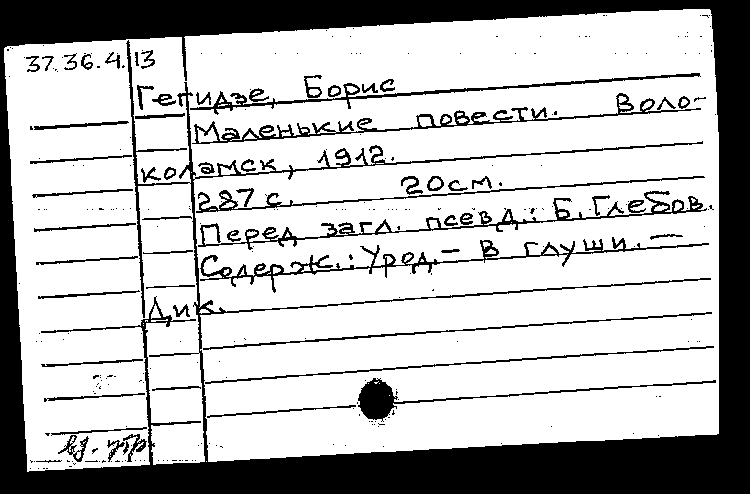 37.36.4.13
Гегидзе, Борис
Маленькие повести. Воло-
коламск, 1912.
287 с. 20см.
Перед загл. псевд.: Б. Глебов.
Содерж.: Урод. — В глуши. —
Дик.